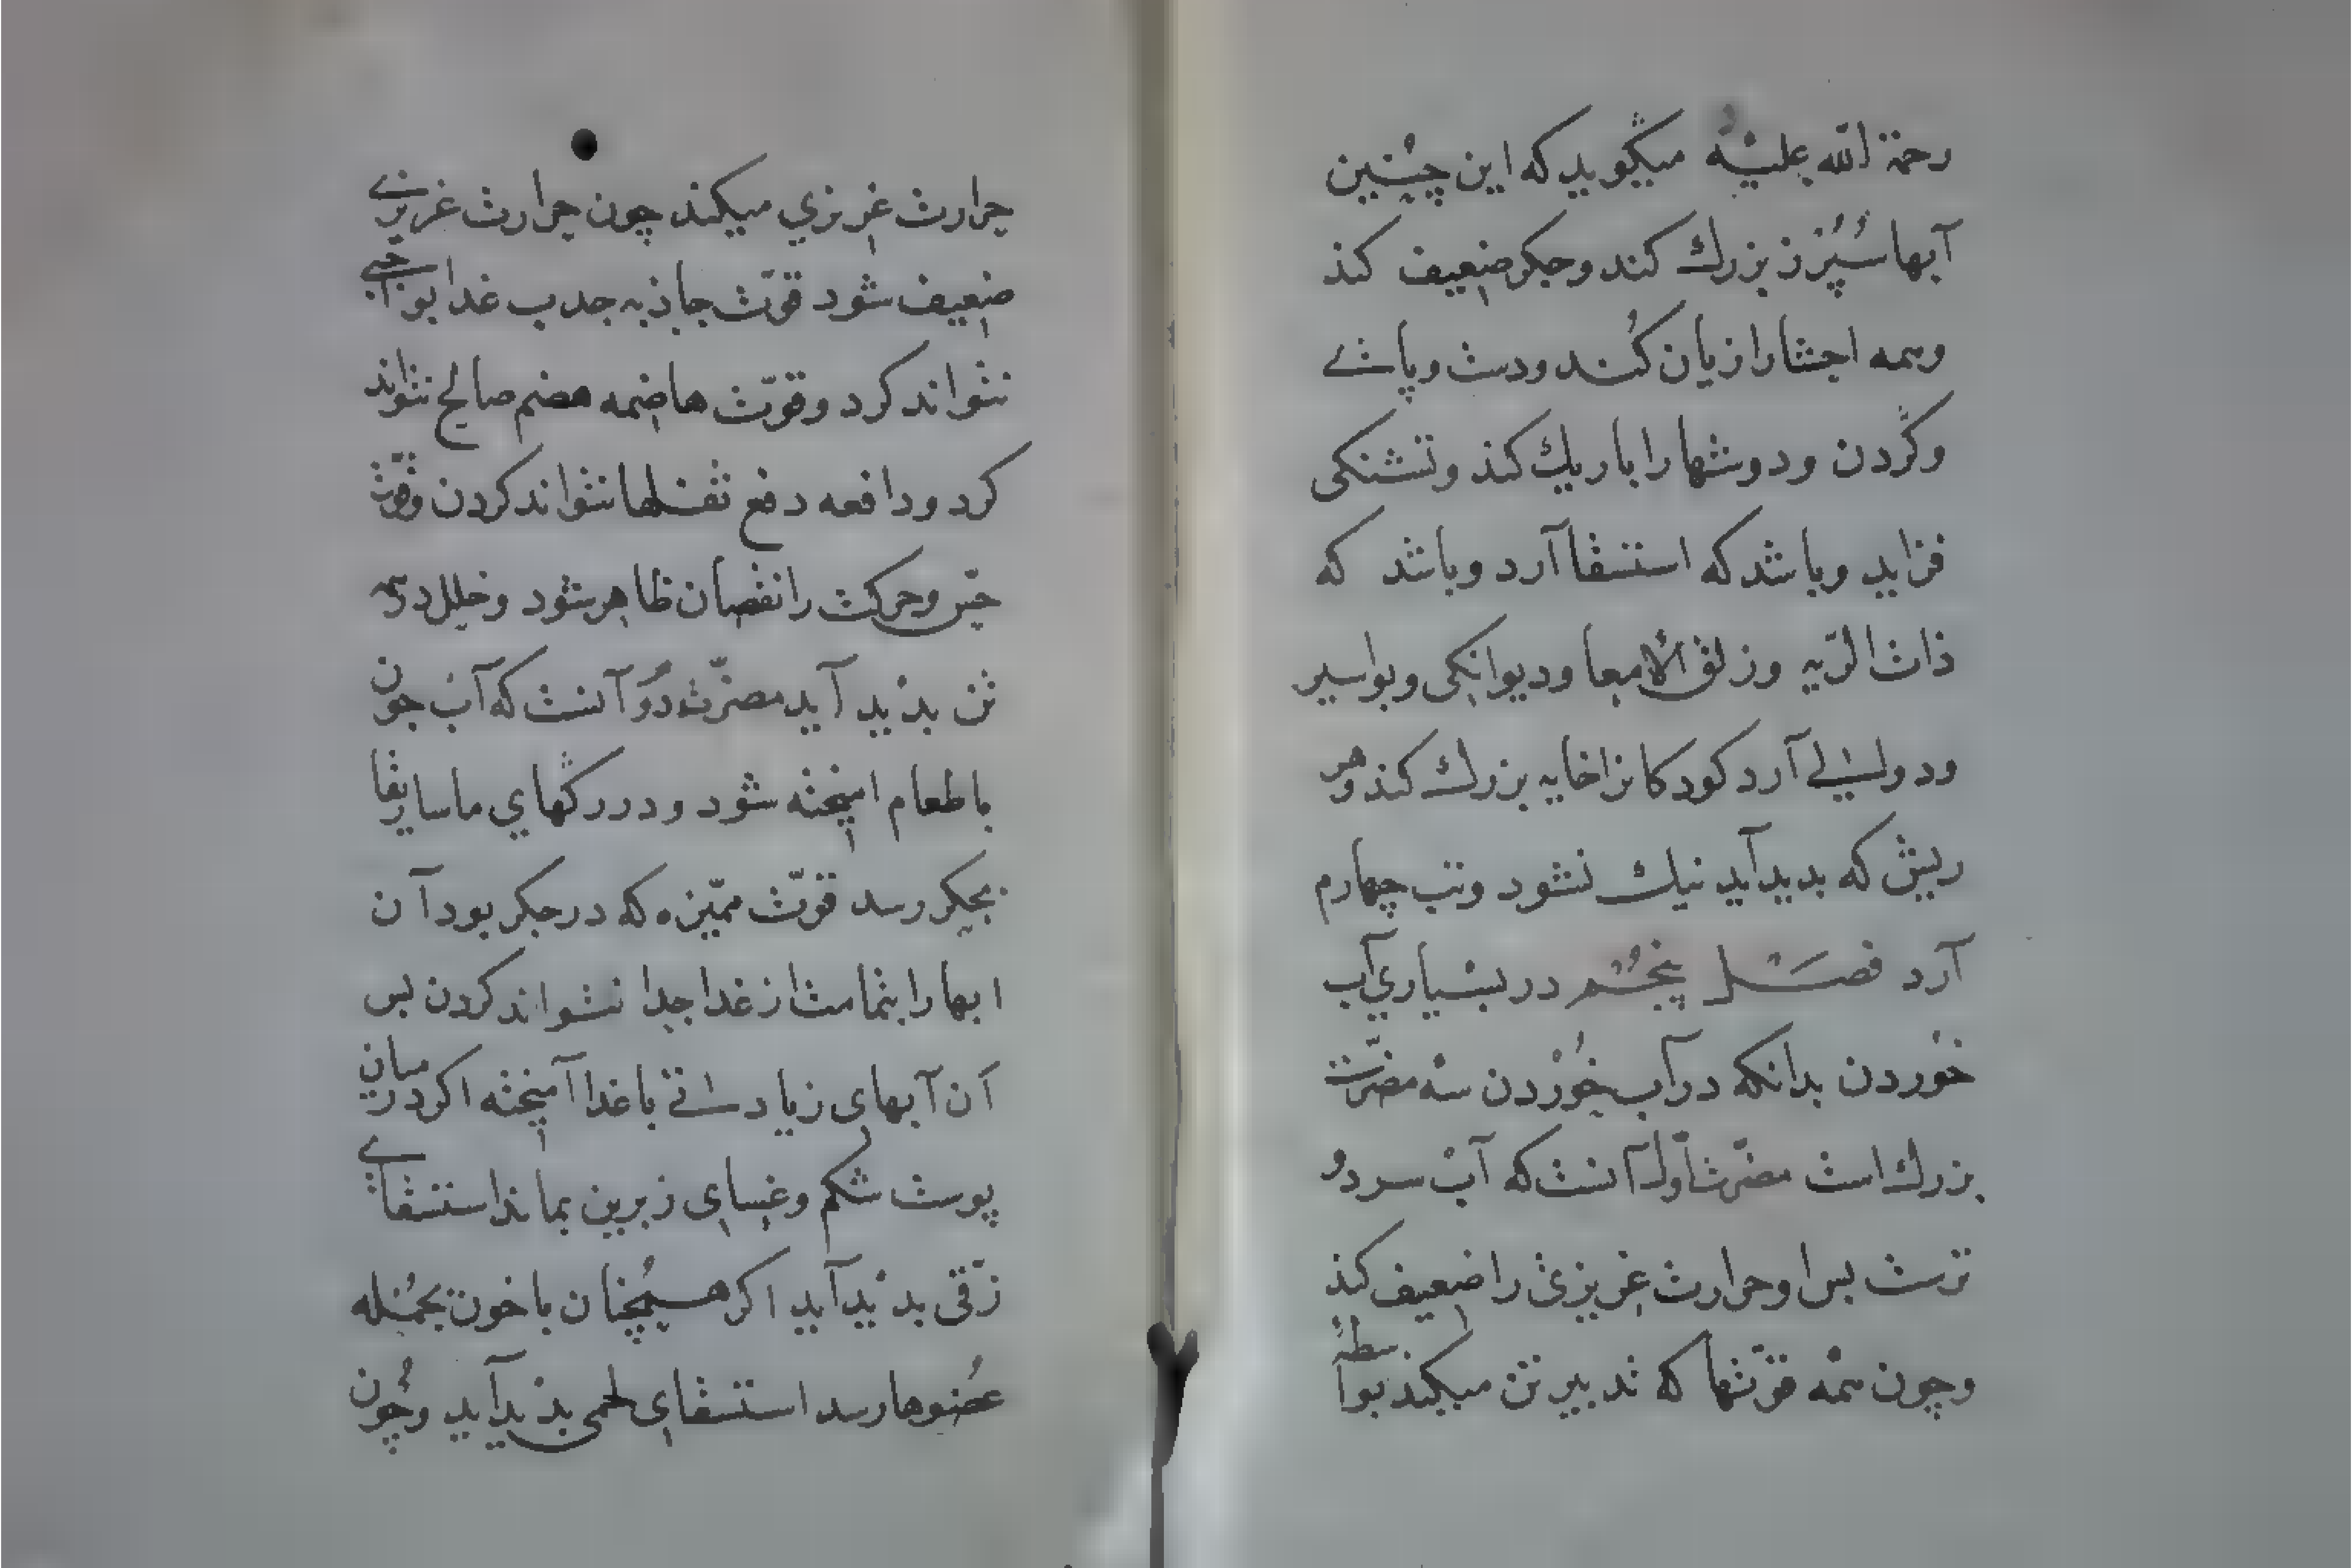 رحمة الله علیه میگوید که این چنین
آبها سُپُرز بزرك کند و جکر ضعیف کند
وهمه احشا را زیان کند ودست وپای
وگردن ودوشها را باریك کند وتشنکی
فزاید وباشد که استسقا آرد وباشد که
ذات الریه وزلق الامعا ودیوانکی وبواسیر
ودوالی آرد کودکانرا خایه بزرك کند وهر
ریش که بدید آید نیك نشود وتب چهارم
آرد فصل پنجم در بسیاری آب
خوردن بدانکه در آب خوردن سه مضرت
بزرك است مضرت اول آنست که آب سرد و
ترست بس او حرارت غریزی را ضعیف کند
وچون همه قوتها که تدبیر تن میکند بواسطهٔ
حرارت غریزی میکند چون حرارت غریزی
ضعیف شود قوت جاذبه جذب غدا بواجبی
نتواند کرد وقوت هاضمه هضم صالح نتواند
کرد ودافعه دفع ثفلها نتواند کردن وقوت
حس وحرکت را نقصان ظاهر شود وخلل در همه
تن بدید آید مضرت دوم آنست که آب جون
با طعام امیخته شود ودر رگهای ماساریقا
بجکر رسد قوت ممیزه که در جکر بود آن
ابها را بتمامت از غدا جدا نتواند کردن بس
آن آبهای زیادتی با غدا آمیخته اکر در میان
پوست شکم وغسای زبرین بماند استسقای
زقی بدید آید اکر همچنان با خون بجمله
عضوها رسد استسقای لحمی بدید آید وچون